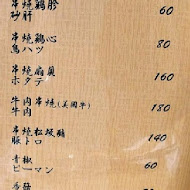 串燒鷄胗 60
砂肝
串燒鷄心 80
鳥ハツ
串燒扇貝 160
ホタテ
牛肉串燒(美國牛) 180
牛肉
串燒松坂豬 140
豚トロ
青椒 60
ピーマン